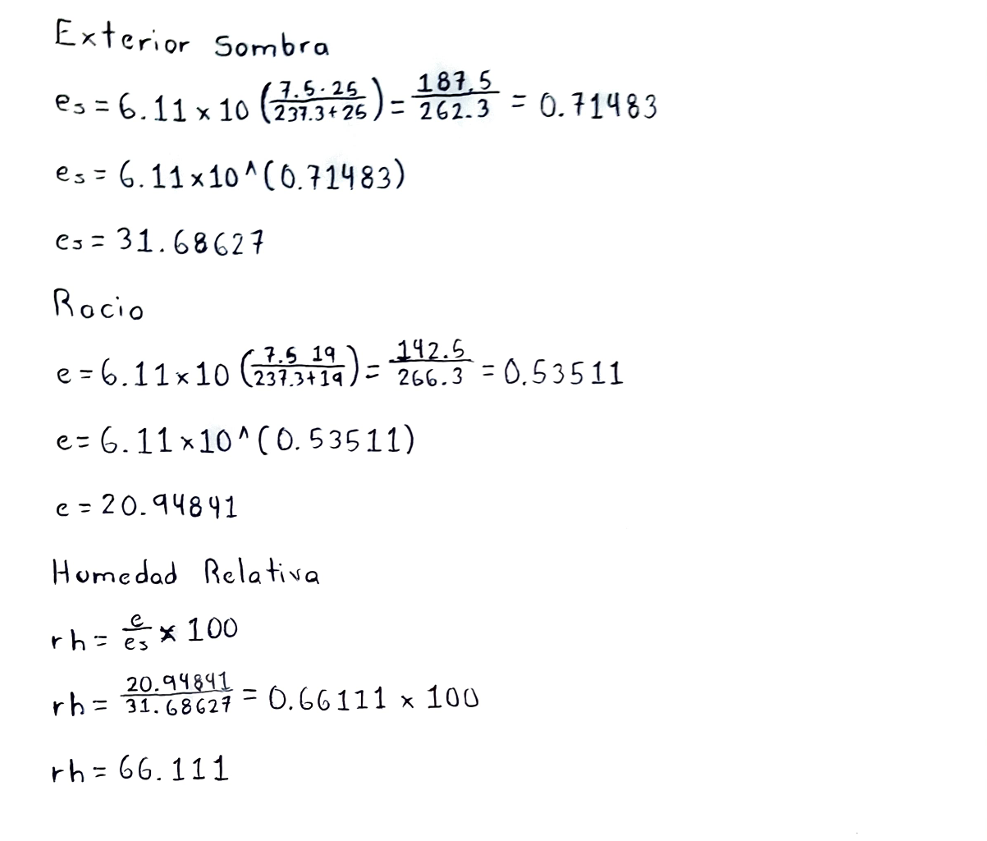 Exterior Sombra
es = 6.11 x 10 (7.5·25/237.3+25) = 187.5/262.3 = 0.71483
es = 6.11x10^(0.71483)
es = 31.68627
Rocio
e = 6.11x10 (7.5 19/237.3+19) = 142.5/266.3 = 0.53511
e = 6.11x10^(0.53511)
e = 20.94841
Humedad Relativa
rh = e/es x 100
rh = 20.94841/31.68627 = 0.66111 x 100
rh = 66.111